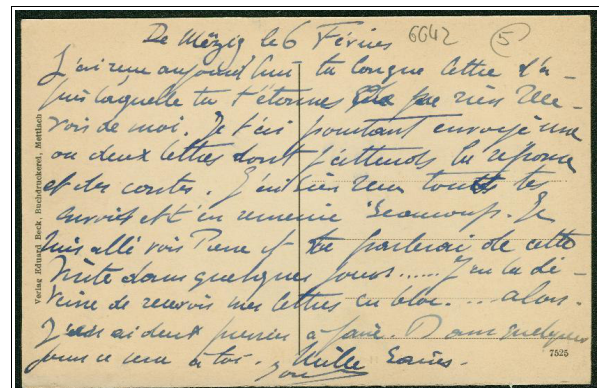 De Mézig le 6 Février
6642
5
J'ai reçu aujourd'hui ta longue lettre d'a-
près laquelle tu t'étonnes que ne rien rece-
vois de moi. Je t'ai pourtant envoyé une
ou deux lettres dont j'attends la réponse
et des contes. J'ai bien reçu tous tes
envois et t'en remercie beaucoup. Je
suis allé voir Pierre et te parlerai de cette
visite dans quelques jours...... J'ai la dé-
veine de recevoir mes lettres en bloc.... alors.
J'en ai deux à faire. Dans quelques
jours ce sera à toi. Mille
Verlag Eduard Beck, Buchdruckerei, Mettlach
7525